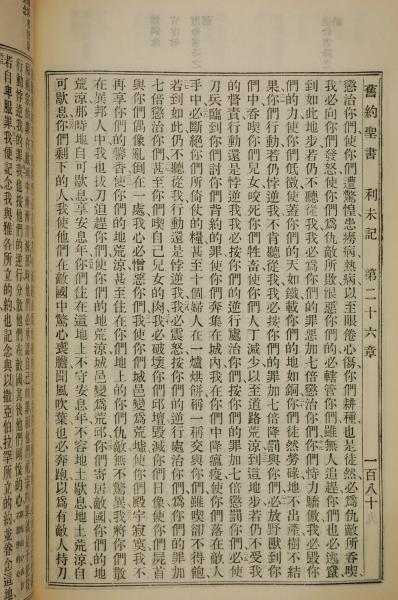 舊約聖書　利未記　第二十六章　一百八十
懲治你們使你們遭驚惶患癆病熱病以至眼倦心傷你們耕種也是徒然必爲仇敵所食喫
我必向你們發怒使你們爲仇敵所敗恨惡你們的必轄管你們雖無人追趕你們也必逃竄
到如此地步若仍不聽從我我必爲你們的罪惡加七倍懲治你們你們恃力驕傲我必毀你
們的力使你們低微使蓋你們的天如鐵載你們的地如銅你們徒然勞碌地不出產樹不結
果你們行動若仍悖逆我不肯聽從我我必按你們的罪加七倍降罰與你們必放野獸到你
們中吞喫你們兒女咬死你們牲畜使你們人丁減少以至道路荒涼到這地步若仍不受我
的督責行動還是悖逆我我必按你們的逆行處治你們按你們的罪加七倍懲罰你們必使
刀兵臨到你們討你們背約的罪使你們奔集在城內我在你們中降瘟疫使你們落在敵人
手中必斷絕你們所倚仗的糧甚至十個婦人在一爐烘餅稱一稱交與你們雖喫卻不得飽
若到如此仍不聽從我行動還是悖逆我我必震怒按你們的逆行處治你們爲你們的罪加
七倍懲治你們甚至你們喫自己兒女的肉我必破壞你們邱壇毀滅你們日像使你們屍首
與你們偶像亂倒在一處我心必憎惡你們我使你們城邑變爲荒墟使你們殿宇寂寞我不
再享你們的馨香使你們的地荒涼甚至住在你們地上的你們仇敵無不驚異我將你們散
在異邦人中我也拔刀追趕你們使你們的地荒涼城邑變爲荒邱你們寄居敵國你們的地
荒涼那時地自可歇息享安息年你們住在這地上不守安息年不容地土歇息地土荒涼自
可歇息你們剩下的人我使他們在敵國中驚心喪膽聞風吹葉也必奔跑以爲有敵人持刀
行動悖逆我的罪我也按他們的逆行分散他們在敵國其後他們剛愎的心
若自卑服罪我便記念我與雅各所立的約也記念與以撒亞伯拉罕所立的約並眷念這地